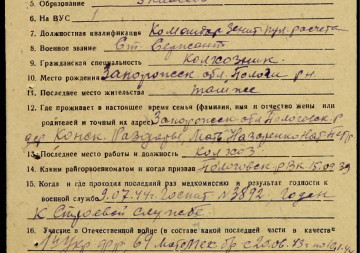 5. Образование
6. На ВУС
7. Должностная квалификация Командир зенит. пул. расчета
8. Военное звание Ст. Сержант
9. Гражданская специальность Колхозник
10. Место рождения Запорожск обл. Пологи р-н
11. Последнее место жительства там же
12. Где проживает в настоящее время семья (фамилия, имя и отчество жены или
родителей и точный их адрес) Запорожск обл Пологовск р
дер. Конск. Раздоры Мать Назаренко Нат.
13. Последнее место работы и должность Колхоз
14. Каким райгорвоенкоматом и когда призван Пологовск. РВК 15.09.39
15. Когда и где проходил последний раз медкомиссию и результат годности к
военной службе 3.07.44г Госпит №3892. Годен
К Строевой службе.
16. Участие в Отечественной войне (в составе какой части, в качестве
Укр. фр. 69 бр с 20.06.43г по